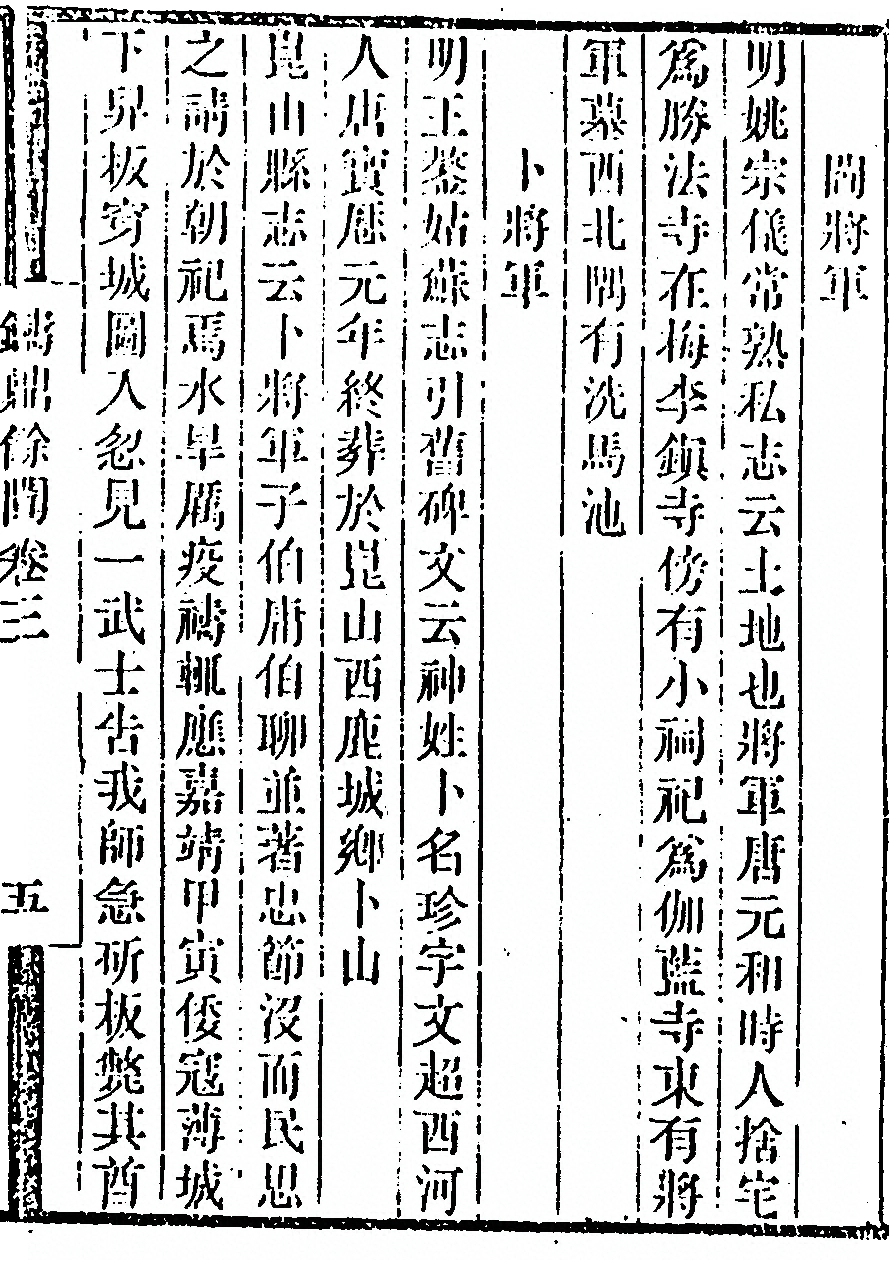 聞將軍
明姚宗儀常熟私志云土地也將軍唐元和時人捨宅
爲勝法寺在梅李鎮寺傍有小祠祀爲伽藍寺東有將
軍墓西北隅有洗馬池
卜將軍
明王鏊姑蘇志引舊碑文云神姓卜名珍字文超西河
人唐寶厯元年終葬於崑山西鹿城鄉卜山
崑山縣志云卜將軍子伯庸伯聊並著忠節沒而民思
之請於朝祀焉水旱厲疫禱輒應嘉靖甲寅倭寇薄城
下舁板穿城圖入忽見一武士告我師急斫板斃其酋
鑄鼎餘聞卷三 五